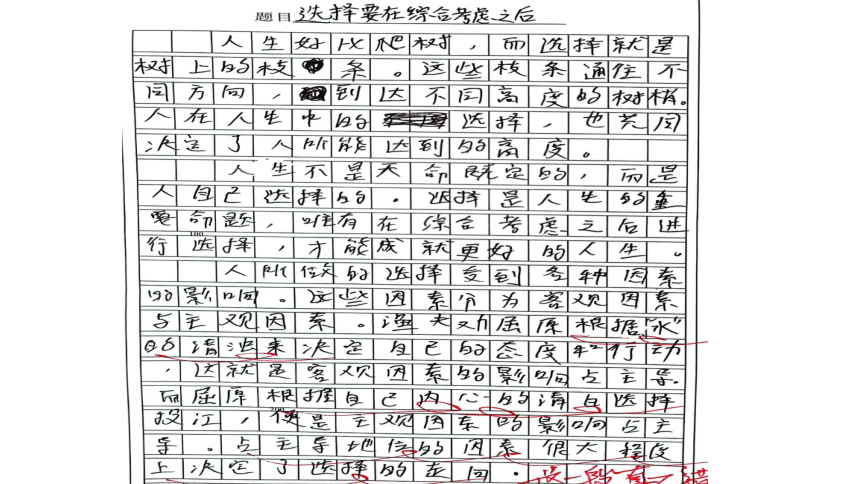 题目 选择要在综合考虑之后
人生好比爬树，而选择就是
树上的枝条。这些枝条通往不
同方向，到达不同高度的树梢。
人在人生中的选择，也共同
决定了人所能达到的高度。
人生不是天命既定的，而是
人自己选择的。选择是人生的重
要命题，唯有在综合考虑之后进
100
行选择，才能成就更好的人生。
人所做的选择受到各种因素
的影响。这些因素分为客观因素
与主观因素。渔夫劝屈原根据“水”
的清浊来决定自己的态度和行动
，这就是客观因素的影响占主导。
而屈原根据自己内心的清白选择
200
投江，便是主观因素的影响占主
导。占主导地位的因素很大程度
上决定了选择的走向。这一段有了